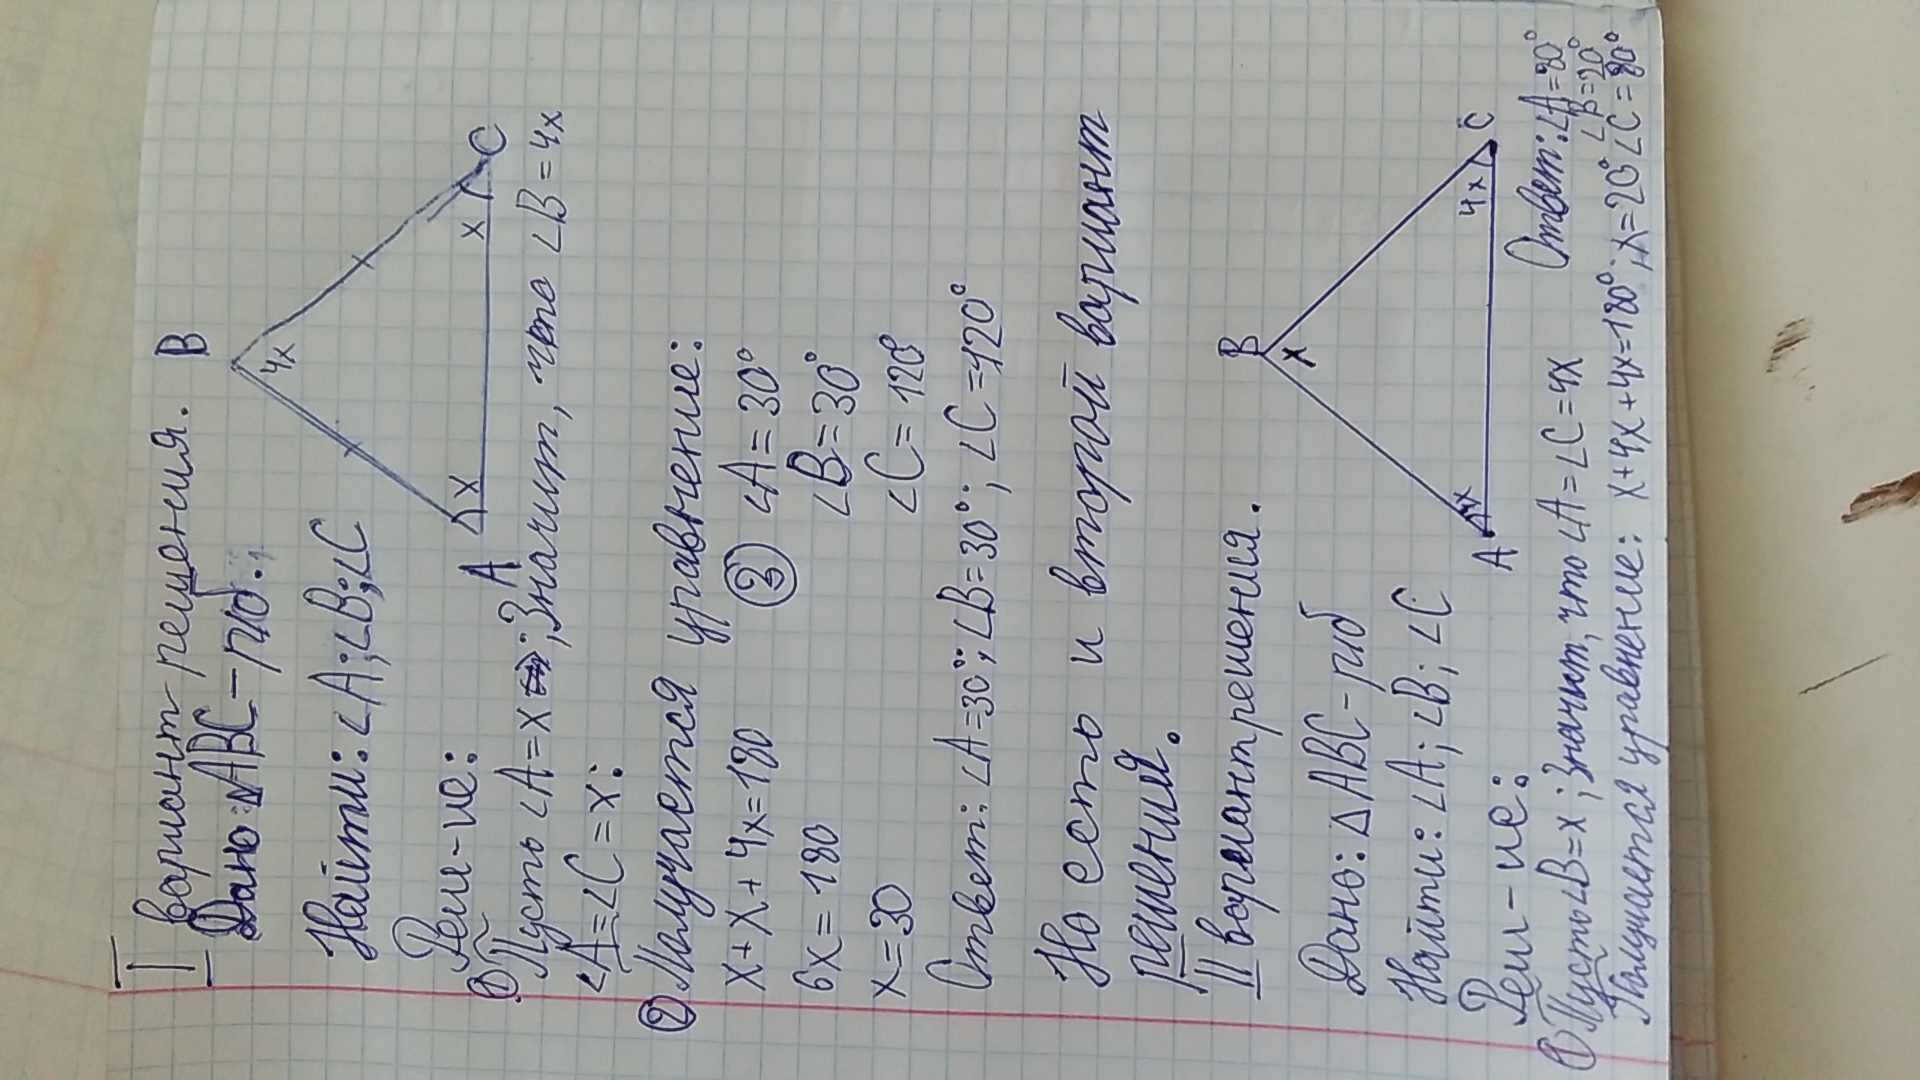 I вариант решения.
Дано: △ABC – р/б.
B
4x
x
x
A
C
Найти: ∠A; ∠B; ∠C
Реш-ие:
① Пусть ∠A = x; Значит, что ∠B = 4x
∠A = ∠C = x:
② Получается уравнение:
x + x + 4x = 180
6x = 180
x = 30
③ ∠A = 30°
∠B = 30°
∠C = 120°
Ответ: ∠A = 30°; ∠B = 30°; ∠C = 120°
Но есть и второй вариант
решений.
II вариант решения.
B
x
4x
4x
A
C
Дано: △ABC – р/б
Найти: ∠A; ∠B; ∠C
Реш-ие:
① Пусть ∠B = x; Значит, что ∠A = ∠C = 4x
Получается уравнение: x + 4x + 4x = 180°; x = 20°
Ответ: ∠A = 80°
∠B = 20°
∠C = 80°